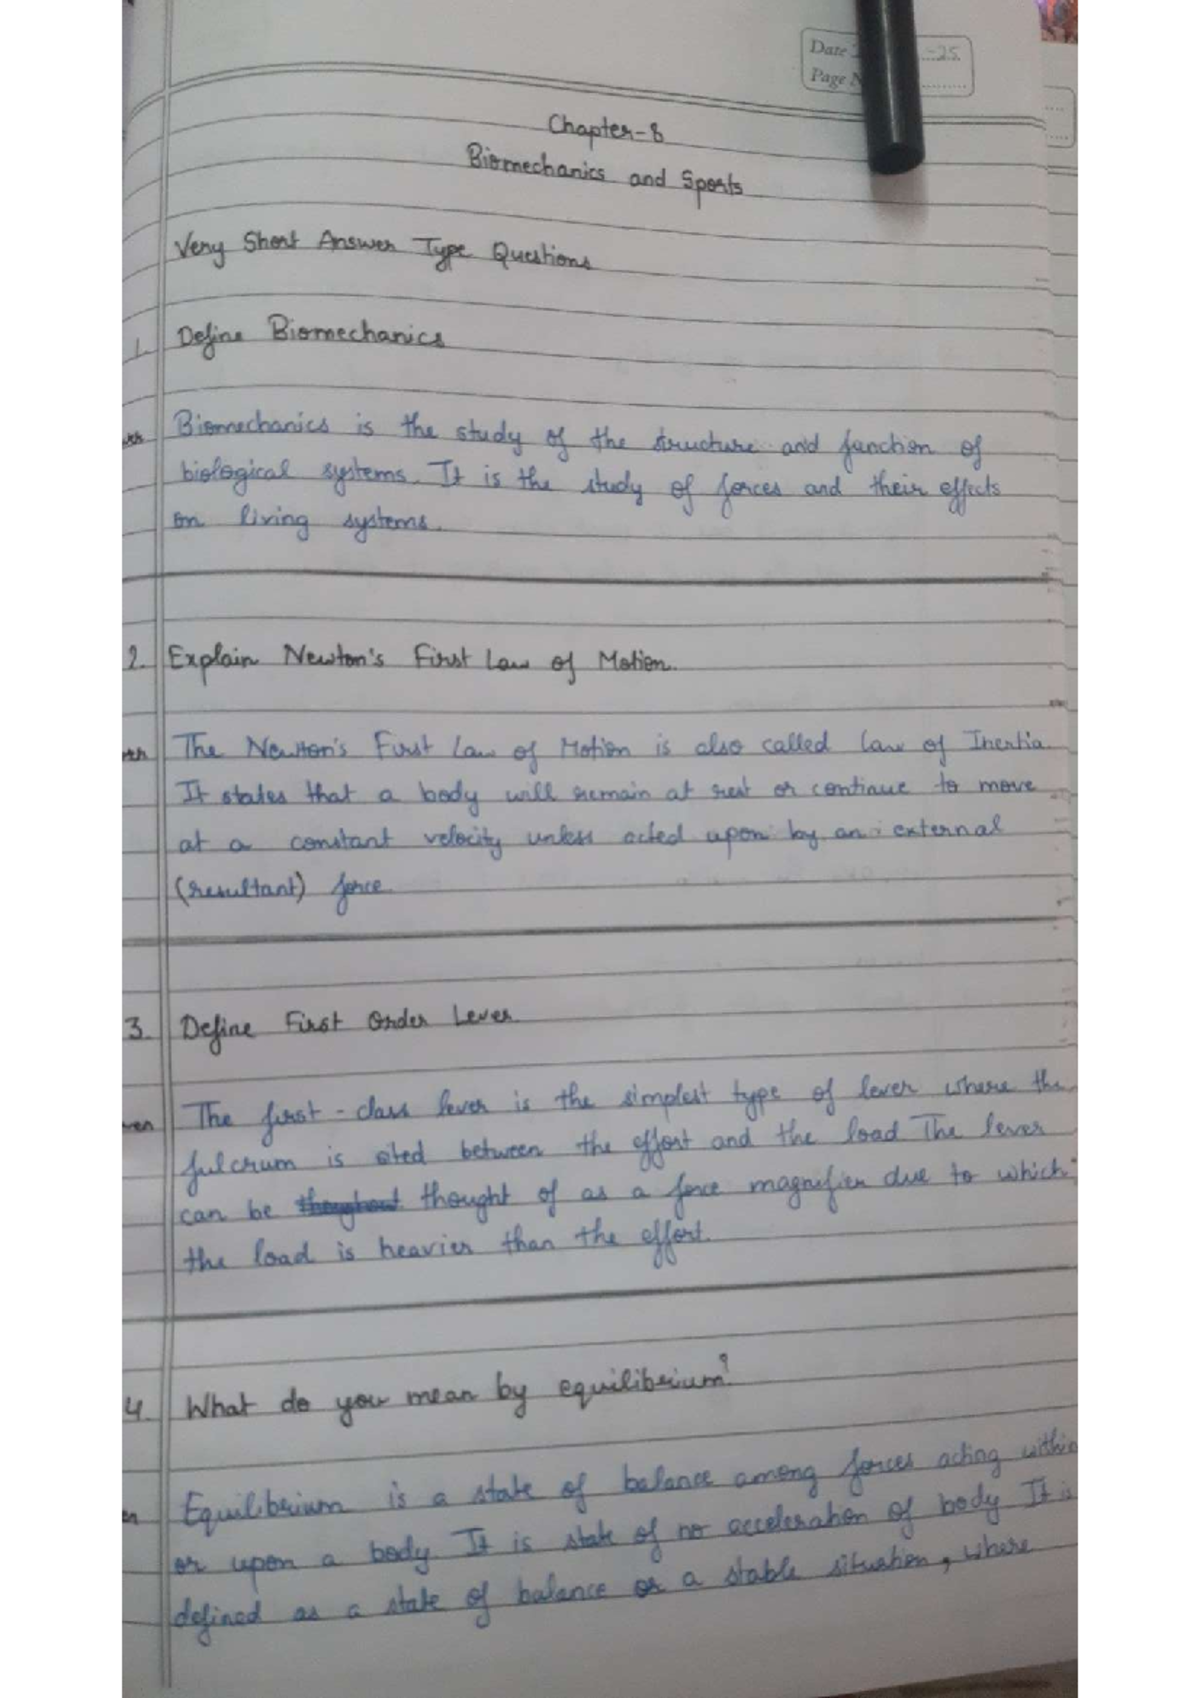 Date -25.
Page N
Chapter-8
Biomechanics and Sports
Very Short Answer Type Questions
1. Define Biomechanics
Biomechanics is the study of the structure and function of
biological systems. It is the study of forces and their effects
on living systems.
2. Explain Newton's First Law of Motion.
The Newton's First Law of Motion is also called Law of Inertia.
It states that a body will remain at rest or continue to move
at a constant velocity unless acted upon by an external
(resultant) force.
3. Define First Order Lever.
The first-class lever is the simplest type of lever where the
fulcrum is sited between the effort and the load The lever
can be thought of as a force magnifier due to which
the load is heavier than the effort.
4. What do you mean by equilibrium?
Equilibrium is a state of balance among forces acting within
or upon a body. It is state of no acceleration of body It is
defined as a state of balance or a stable situation, where